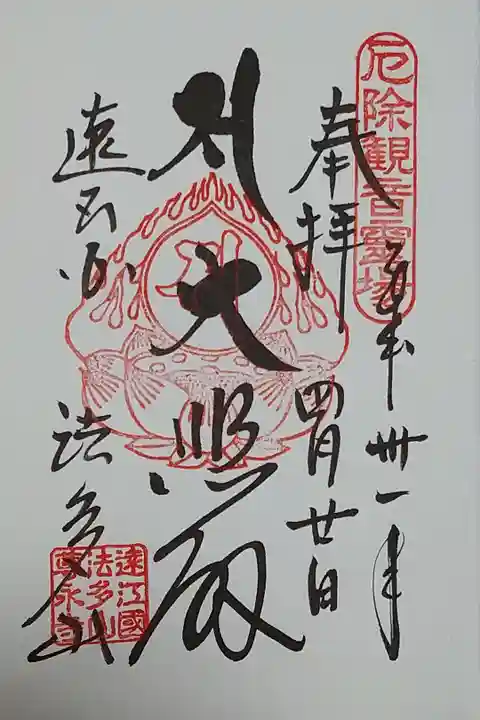 厄除観音靈場
平成卅一年
奉拝
四月廿日
大悲殿
遠州 法多山
遠江國
法多山
尊永寺